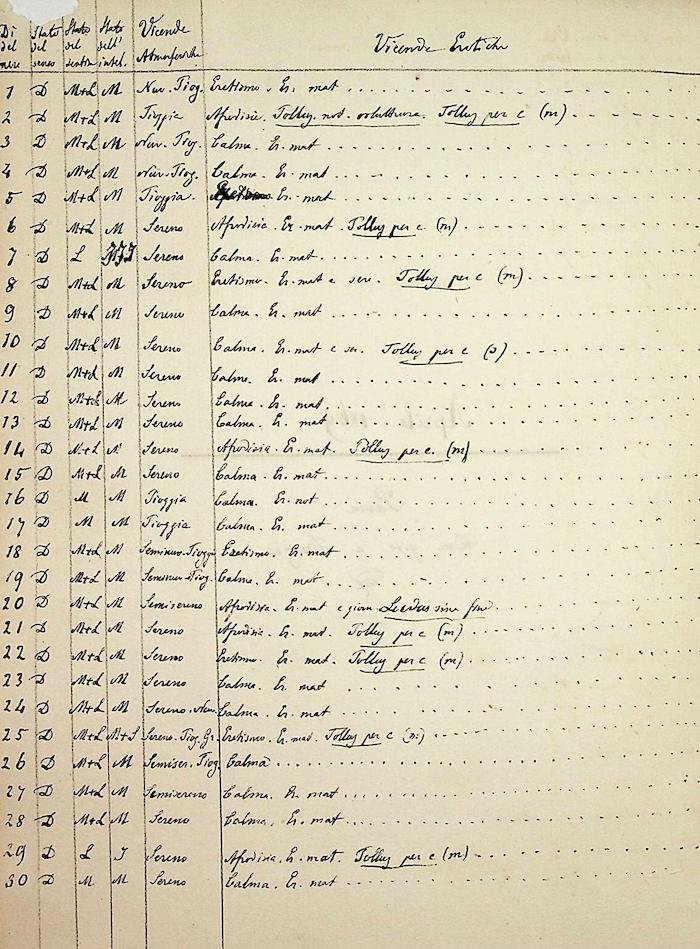 Dì del mese Stato del senso Stato del sentim Stato dell' intel. Vicende Atmosferiche Vicende Erotiche
1 D M+L M Nuv. Piog. Eretismo. Er. mat
2 D M+L M Pioggia Afrodisia. not. voluttuosa. per c (m)
3 D M+L M Nuv. Piog. Calma. Er. mat
4 D M+L M Nuv. Piog. Calma. Er. mat
5 D M+L M Pioggia. Er. mat
6 D M+L M Sereno Afrodisia. Er. mat. per c. (m)
7 D L Sereno Calma. Er. mat.
8 D M+L M Sereno Eretismo. Er. mat e ser. per c (m)
9 D M+L M Sereno Calma. Er. mat
10 D M+L M Sereno Calma. Er. mat e ser. per c (s)
11 D M+L M Sereno Calma. Er. mat
12 D M+L M Sereno Calma. Er. mat.
13 D M+L M Sereno Calma. Er. mat
14 D M+L M Sereno Afrodisia. Er. mat. per c. (m)
15 D M+L M Sereno Calma. Er. mat
16 D M M Pioggia Calma. Er. mat
17 D M M Pioggia Calma. Er. mat
18 D M+L M Eretismo. Er. mat
19 D M+L M Calma. Er. mat
20 D M+L M Semisereno Afrodisia. Er. mat e giorn sine fine
21 D M+L M Sereno Afrodisia. Er. mat. per c (m)
22 D M+L M Sereno Eretismo. Er. mat. per c (m)
23 D M+L M Sereno Calma. Er. mat
24 D M+L M Sereno. Nuv. Calma. Er. mat
25 D M+L Sereno. Piog. Gr. Eretismo. Er. mat. per c (m)
26 D M+L M Semiser. Piog. Calma
27 D M+L M Semisereno Calma. Er. mat
28 D M+L M Sereno Calma. Er. mat
29 D L I Sereno Afrodisia. Er. mat. per c (m)
30 D M M Sereno Calma. Er. mat